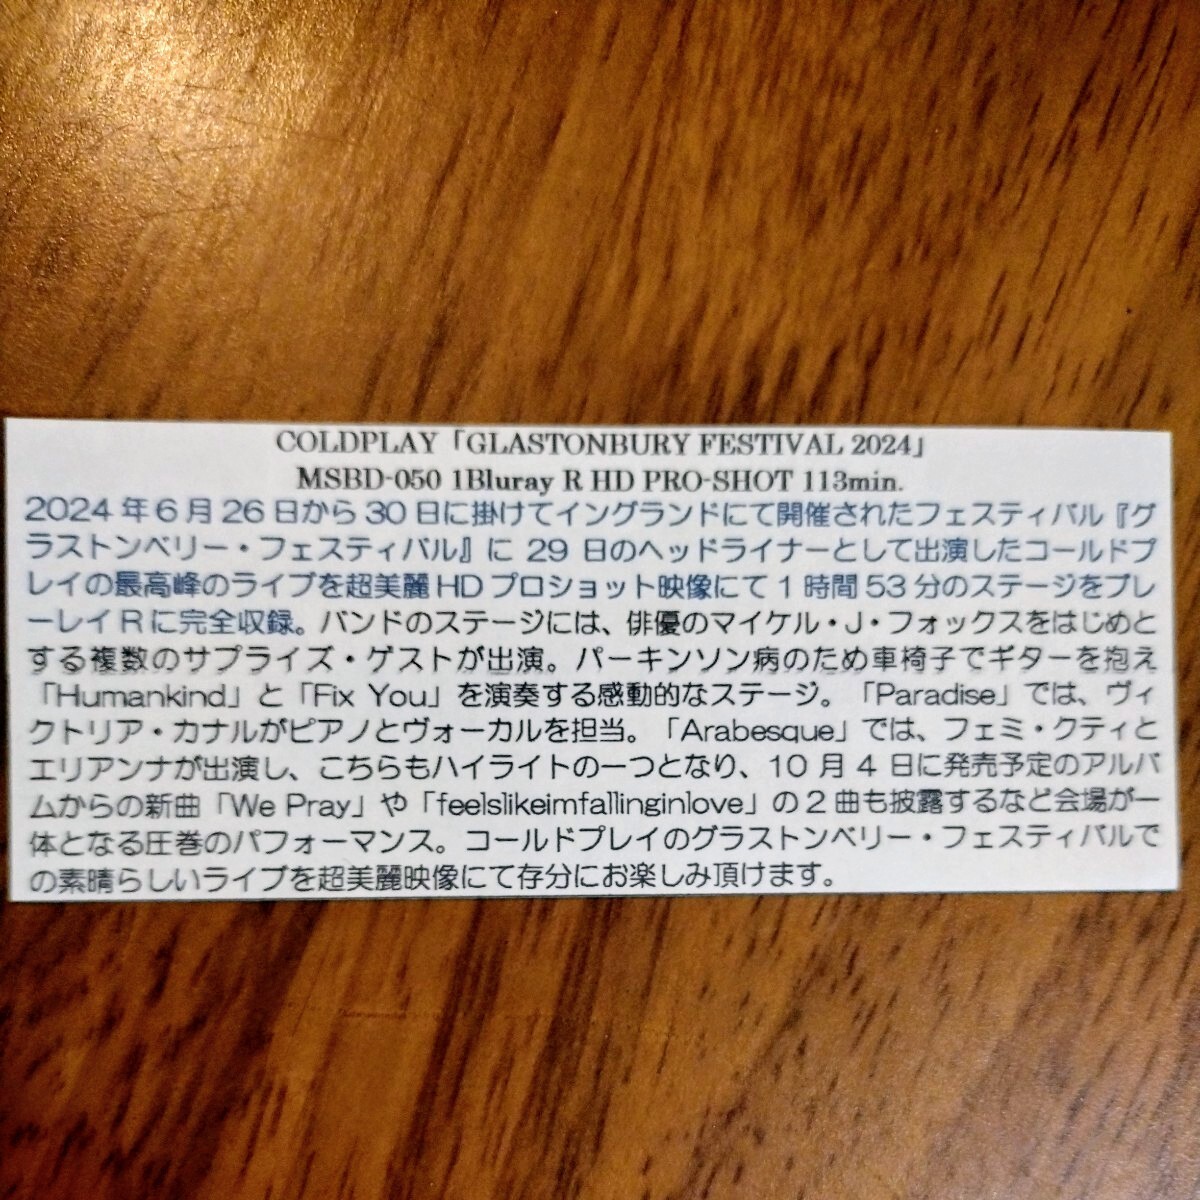 COLDPLAY「GLASTONBURY FESTIVAL 2024」
MSBD-050 1Bluray R HD PRO-SHOT 113min.
2024年6月26日から30日に掛けてイングランドにて開催されたフェスティバル『グ
ラストンベリー・フェスティバル』に 29 日のヘッドライナーとして出演したコールドプ
レイの最高峰のライブを超美麗HDプロショット映像にて1時間53分のステージをブル
ーレイRに完全収録。バンドのステージには、俳優のマイケル・J・フォックスをはじめと
する複数のサプライズ・ゲストが出演。パーキンソン病のため車椅子でギターを抱え
「Humankind」と「Fix You」を演奏する感動的なステージ。「Paradise」では、ヴィ
クトリア・カナルがピアノとヴォーカルを担当。「Arabesque」では、フェミ・クティと
エリアンナが出演し、こちらもハイライトの一つとなり、10月4日に発売予定のアルバ
ムからの新曲「We Pray」や「feelslikeimfallinginlove」の2曲も披露するなど会場が一
体となる圧巻のパフォーマンス。コールドプレイのグラストンベリー・フェスティバルで
の素晴らしいライブを超美麗映像にて存分にお楽しみ頂けます。